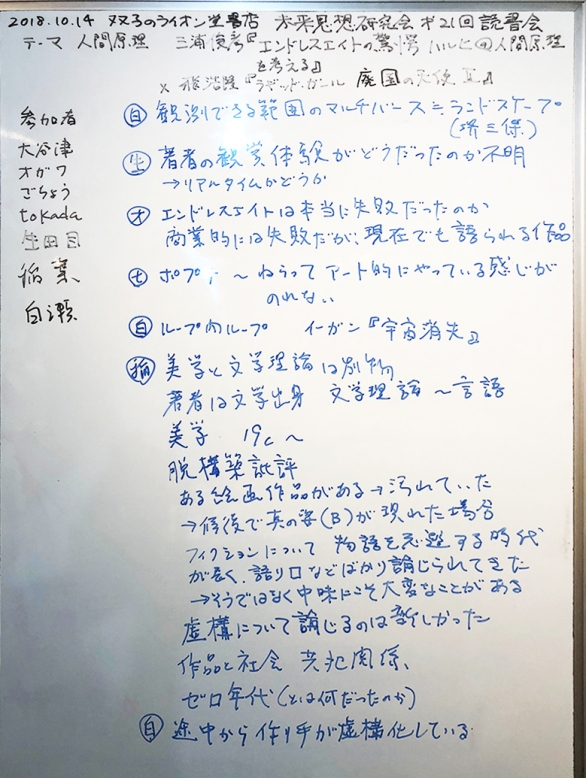 2018.10.14 双子のライオン堂書店 未来思想研究会 #21回 読書会
テーマ 人間原理 三浦俊彦『エンドレスエイトの驚愕 ハルヒ@人間原理
を考える』
× 飛浩隆『ラギッド・ガール 廃園の天使Ⅱ』
参加者
大谷津
オガワ
ごちょう
tokada
生田目
稲葉
白瀬
㊐ 観測できる範囲のマルチバース≒ランドスケープ
(堺三保)
生 著者の観賞体験がどうだったのか不明
→リアルタイムかどうか
オ エンドレスエイトは本当に失敗だったのか
商業的には失敗だが、現在でも語られる作品
ポプ ~ねらってアート的にやっている感じが
のれない
白 ループ内ループ イーガン『宇宙消失』
稲 美学と文学理論は別物
著者は文学出身 文学理論~言語
美学 19c~
脱構築批評
ある絵画作品がある→汚れていた
→修復で真の姿(B)が現れた場合
フィクションについて 物語を忌避する時代
が長く、語り口などばかり論じられてきた
→そうではなく中味にこそ大変なことがある
虚構について論じるのは新しかった
作品と社会 共犯関係、
ゼロ年代(とは何だったのか)
白 途中から作り手が虚構化している